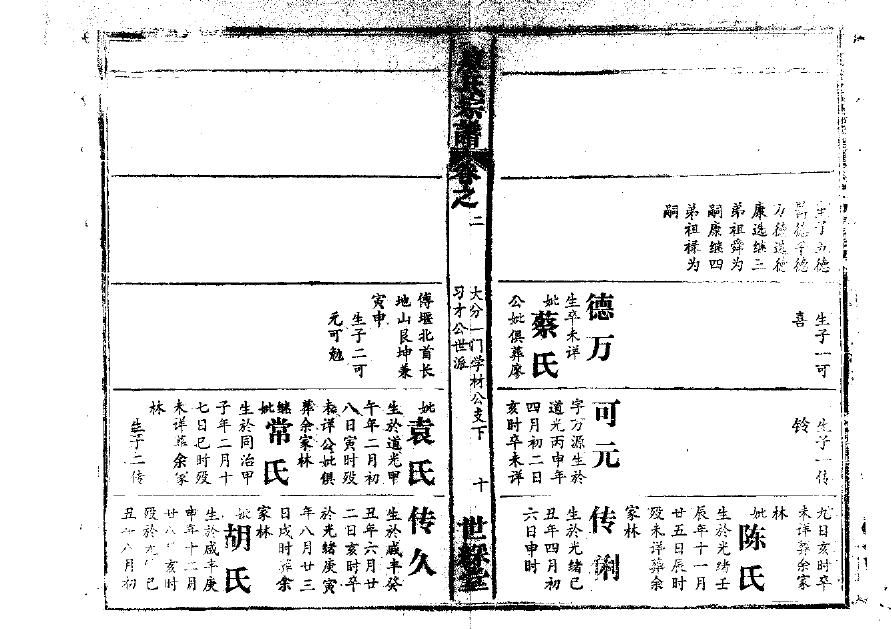 生子五德
万德选德
康选继三
弟祖舜为
嗣康继四
弟祖禄为
嗣
生子一可
喜
德万
生卒未详
妣
蔡氏
公妣俱葬廖
生子一传
铃
可元
字万源生於
道光丙申年
四月初二日
亥时卒未详
九日亥时卒
未详葬余家
林
妣
陈氏
生於光绪壬
辰年十一月
廿五日辰时
殁未详葬余
家林
传俐
生於光绪己
丑年四月初
六日申时
氏宗谱
卷之
二
大分一门学材公支下
习才公世派
十
世
堂
傅堰北首长
地山艮坤兼
寅申
生子二可
元可勉
妣
袁氏
生於道光甲
午年二月初
八日寅时殁
未详公妣俱
葬余家林
继妣
常氏
生於同治甲
子年二月十
七日巳时殁
未详葬余家
林
生子二传
传久
生於咸丰癸
丑年六月廿
二日亥时卒
於光绪庚寅
年八月廿三
日戌时葬余
家林
妣
胡氏
生於咸丰庚
申年十二月
廿八亥时
殁於光己
丑年六月初